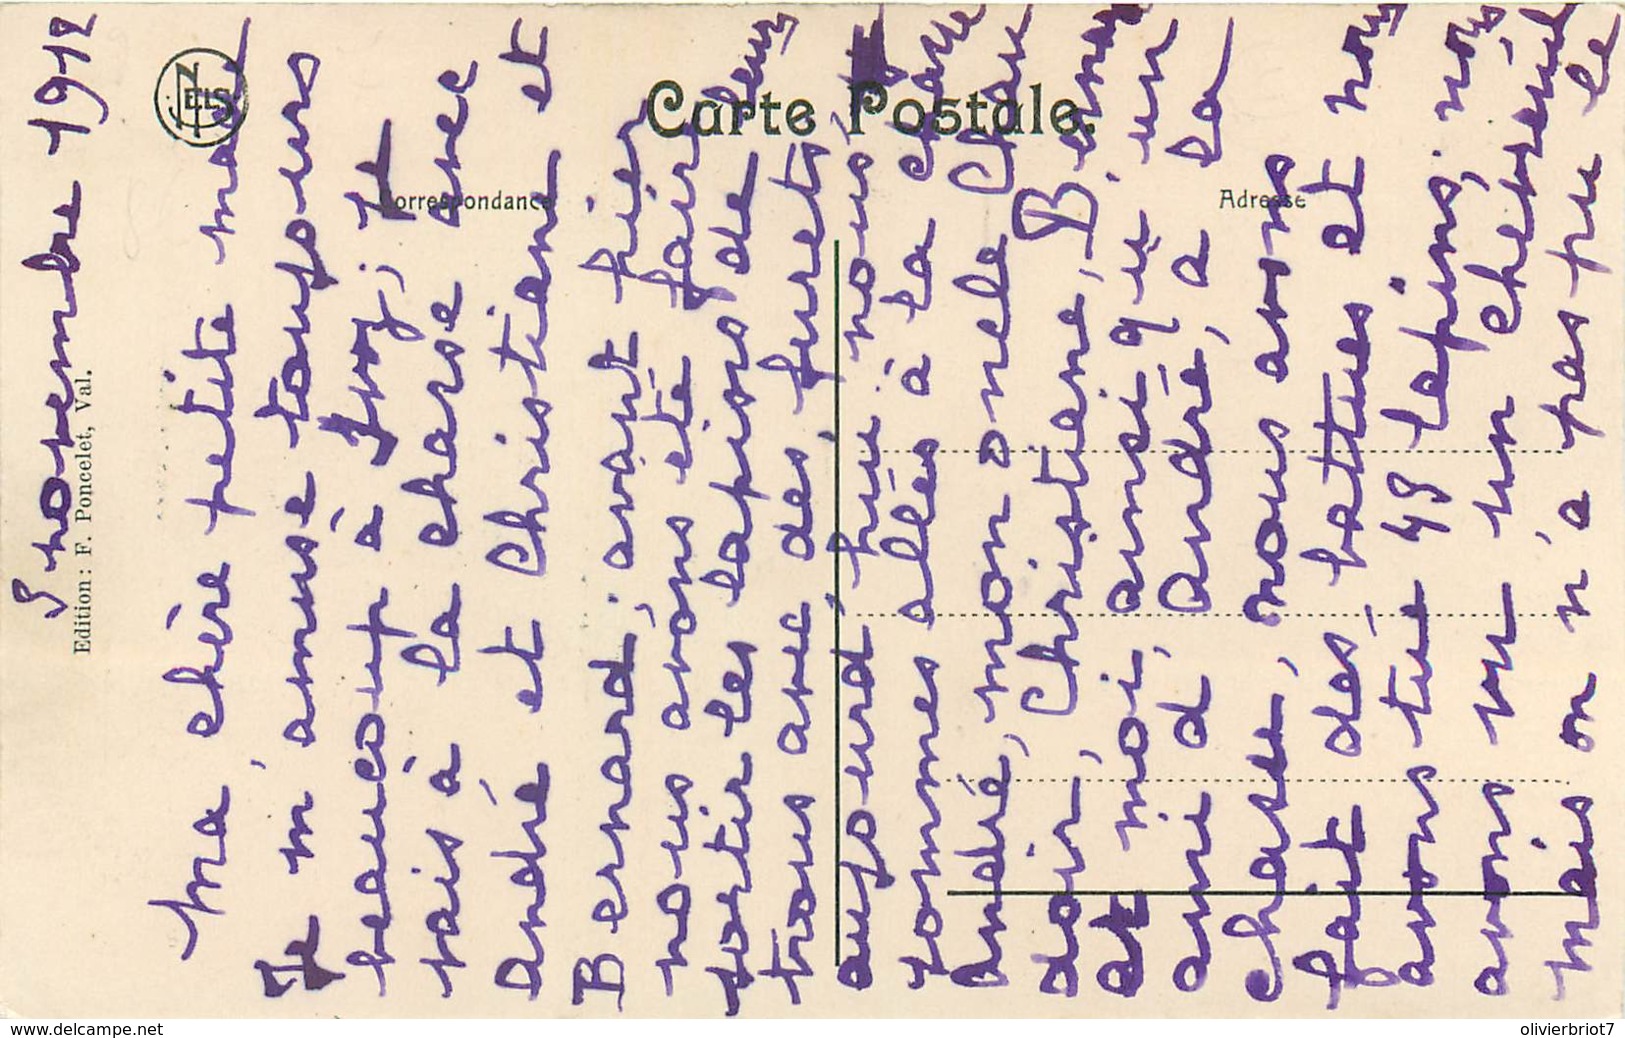 9 novembre 1912
Ma chère petite mama
Je m'amuse toujours
beaucoup à Ivoz; je
vais à la chasse avec
André et Christiane et
Bernard, avant hier
nous avons été faire
sortir les lapins de leurs
trous avec des furets,
aujourd'hui nous
sommes allés à la chasse
André, mon oncle
Christiane, Bernard
et moi, ainsi qu'un
ami d'André, à la
chasse, nous avons
fait des battues et nous
avons tué 48 lapins, nous
avons vu un chevreuil
mais on n'a pas pu le
Carte Postale.
Correspondance
Adresse
Edition: F. Poncelet, Val.
NELS
www.delcampe.net
olivierbriot7